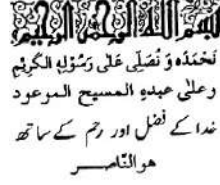 بسم الله الرحمن الرحيم
نَحْمَدُهٗ وَ نُصَلِّی عَلٰی رَسُوْلِهِ الْكَرِیْمِ
وعلٰی عبدهِ المسیح الموعود
خدا کے فضل اور رحم کے ساتھ
هو النّاصر